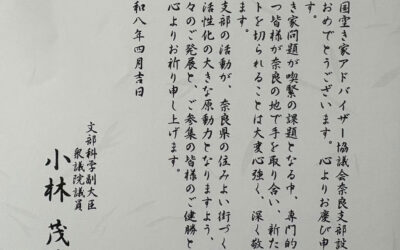 国空き家アドバイザー協議会奈良支部設
おめでとうございます。心よりお慶び申
き家問題が喫緊の課題となる中、専門的
つ皆様が奈良の地で手を取り合い、新た
トを切られることは大変心強く、深く敬
支部の活動が、奈良県の住みよい街づく
活性化の大きな原動力となりますよう、
々のご発展と、ご参集の皆様のご健勝と
心よりお祈り申し上げます。
和八年四月吉日
文部科学副大臣
衆議院議員
小林茂